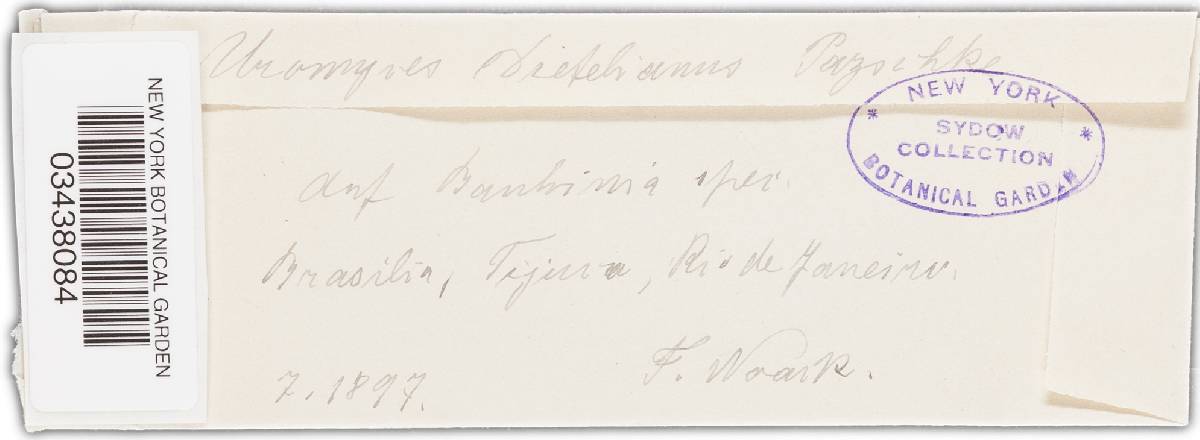 Uromyces Dietelianus Pazschke
auf Bauhinia spec.
Brasilia, Tijuca, Rio de Janeiro.
7. 1897.
F. Noack.
NEW YORK
SYDOW
COLLECTION
BOTANICAL GARDEN
NEW YORK BOTANICAL GARDEN
03438084